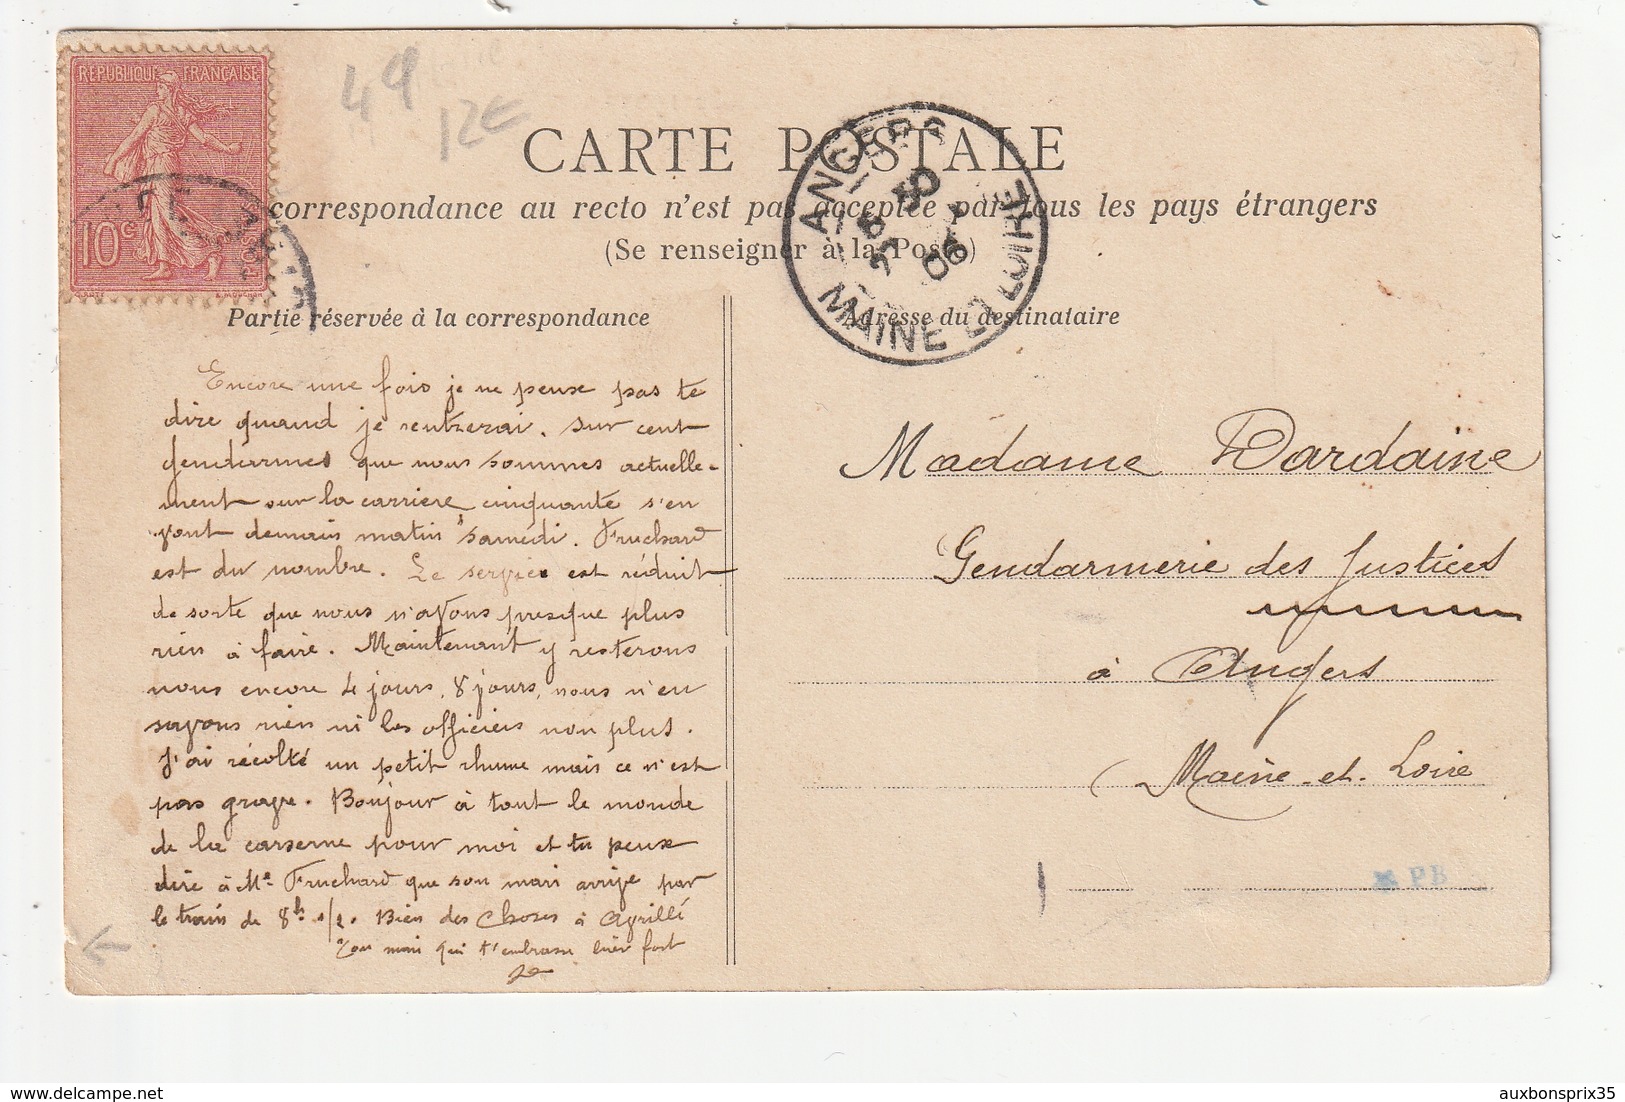 RÉPUBLIQUE FRANÇAISE
10c
POSTES
49
12€
CARTE POSTALE
correspondance au recto n'est pas acceptée par tous les pays étrangers
(Se renseigner à la Poste)
ANGERS
MAINE ET LOIRE
06
Partie réservée à la correspondance
Encore une fois je ne peux pas te
dire quand je rentrerai. Sur cent
gendarmes que nous sommes actuelle-
ment sur la carrière cinquante s'en
vont demain matin samedi. Fruchard
est du nombre. Le service est réduit
de sorte que nous n'avons presque plus
rien à faire. Maintenant y resterons
nous encore 4 jours, 8 jours, nous n'en
savons rien ni les officiers non plus.
J'ai récolté un petit rhume mais ce n'est
pas grave. Bonjour à tout le monde
de la caserne pour moi et tu peux
dire à Me Fruchard que son mari arrive par
le train de 8h 1/2. Bien des choses à Agrillé
Ton mari qui t'embrasse bien fort
Adresse du destinataire
Madame Dardaine
Gendarmerie des Justices
à Angers
(Maine-et-Loire
PB
auxbonsprix35